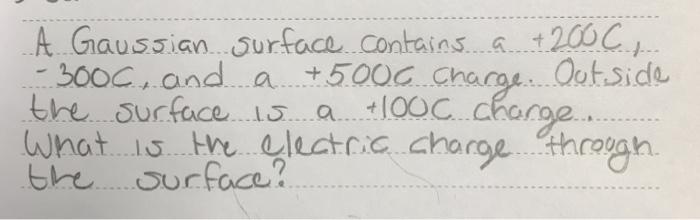 A Gaussian surface contains a +200C,
-300C, and a +500C charge. Outside
the surface is a +100C charge.
What is the electric charge through
the surface?